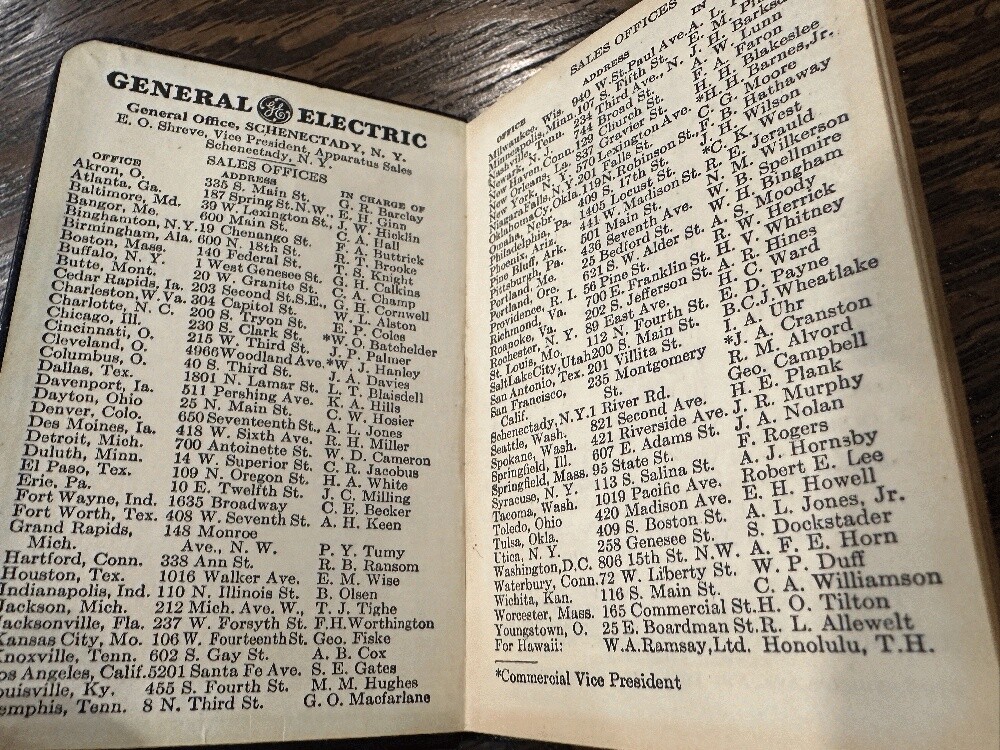 GENERAL GE ELECTRIC
General Office, SCHENECTADY, N. Y.
E. O. Shreve, Vice President, Apparatus Sales
Schenectady, N. Y.
SALES OFFICES
OFFICE ADDRESS IN CHARGE OF
Akron, O. 335 S. Main St. G. R. Barclay
Atlanta, Ga. 187 Spring St. N.W., E. H. Ginn
Baltimore, Md. 39 W. Lexington St., J. W. Hicklin
Bangor, Me. 600 Main St. C. A. Hall
Binghamton, N.Y. 19 Chenango St. F. A. Buttrick
Birmingham, Ala. 600 N. 18th St. R. T. Brooke
Boston, Mass. 140 Federal St. T. S. Knight
Buffalo, N. Y. 1 West Genesee St. G. H. Calkins
Butte, Mont. 20 W. Granite St. C. A. Champ
Cedar Rapids, Ia. 203 Second St. S.E., G. H. Cornwell
Charleston, W. Va. 304 Capitol St. W. L. Alston
Charlotte, N. C. 200 S. Tryon St. E. P. Coles
Chicago, Ill. 230 S. Clark St. *W. O. Batchelder
Cincinnati, O. 215 W. Third St. J. P. Palmer
Cleveland, O. 4966 Woodland Ave. *W. J. Hanley
Columbus, O. 40 S. Third St. J. A. Davies
Dallas, Tex. 1801 N. Lamar St. L. T. Blaisdell
Davenport, Ia. 511 Pershing Ave. K. A. Hills
Dayton, Ohio 25 N. Main St. C. W. Hosier
Denver, Colo. 650 Seventeenth St., A. L. Jones
Des Moines, Ia. 418 W. Sixth Ave. R. H. Miller
Detroit, Mich. 700 Antoinette St. W. D. Cameron
Duluth, Minn. 14 W. Superior St. C. R. Jacobus
El Paso, Tex. 109 N. Oregon St. H. A. White
Erie, Pa. 10 E. Twelfth St. J. C. Milling
Fort Wayne, Ind. 1635 Broadway C. E. Becker
Fort Worth, Tex. 408 W. Seventh St. A. H. Keen
Grand Rapids, 148 Monroe
Mich. Ave., N. W. P. Y. Tumy
Hartford, Conn. 338 Ann St. R. B. Ransom
Houston, Tex. 1016 Walker Ave. E. M. Wise
Indianapolis, Ind. 110 N. Illinois St. B. Olsen
Jackson, Mich. 212 Mich. Ave. W., T. J. Tighe
Jacksonville, Fla. 237 W. Forsyth St. F.H.Worthington
Kansas City, Mo. 106 W. Fourteenth St. Geo. Fiske
Knoxville, Tenn. 602 S. Gay St. A. B. Cox
os Angeles, Calif. 5201 Santa Fe Ave. S. E. Gates
ouisville, Ky. 455 S. Fourth St. M. M. Hughes
emphis, Tenn. 8 N. Third St. G. O. Macfarlane
SALES OFFICES IN
OFFICE ADDRESS
Milwaukee, Wis. 940 W. St. Paul Ave. A. L.
Minneapolis, Minn. 107 S. Fifth St. E. M.
Nashville, Tenn. 234 Third Ave., N. J. H.
Newark, N. J. 744 Broad St. A. W. Lunn
New Haven, Conn. 129 Church St. F. A. Faron
New Orleans, La. 837 Gravier St. H. Blakeslee
New York, N. Y. 570 Lexington Ave. *H. H. Barnes, Jr.
Niagara Falls, N.Y. 201 Falls St. C. G. Moore
Oklahoma Cy, Okla. 119 N. Robinson St., F. B. Hathaway
Omaha, Nebr. 409 S. 17th St. J. H. Wilson
Philadelphia, Pa. 1405 Locust St. *C. K. West
Phoenix, Ariz. 441 W. Madison St. R. E. Jerauld
Pine Bluff, Ark. 501 Main St. N. M. Wilkerson
Pittsburgh, Pa. 436 Seventh Ave. W. B. Spellmire
Portland, Me. 25 Bedford St. H. Bingham
Portland, Ore. 621 S. W. Alder St. A. S. Moody
Providence, R. I. 56 Pine St. R. W. Herrick
Richmond, Va. 700 E. Franklin St. H. V. Whitney
Roanoke, Va. 202 S. Jefferson St. A. R. Hines
Rochester, N. Y. 89 East Ave. H. C. Ward
St. Louis, Mo. 112 N. Fourth St. E. D. Payne
Salt Lake City, Utah 200 S. Main St. B.C.J. Wheatlake
San Antonio, Tex. 201 Villita St. I. A. Uhr
San Francisco, 235 Montgomery *J. A. Cranston
Calif. St. R. M. Alvord
Schenectady, N.Y. 1 River Rd. Geo. Campbell
Seattle, Wash. 821 Second Ave. H. E. Plank
Spokane, Wash. 421 Riverside Ave. J. R. Murphy
Springfield, Ill. 607 E. Adams St. J. A. Nolan
Springfield, Mass. 95 State St. F. Rogers
Syracuse, N. Y. 113 S. Salina St. A. J. Hornsby
Tacoma, Wash. 1019 Pacific Ave. Robert E. Lee
Toledo, Ohio 420 Madison Ave. E. H. Howell
Tulsa, Okla. 409 S. Boston St. A. L. Jones, Jr.
Utica, N. Y. 258 Genesee St. S. Dockstader
Washington, D.C. 806 15th St. N.W. A. F. E. Horn
Waterbury, Conn. 72 W. Liberty St. W. P. Duff
Wichita, Kan. 116 S. Main St. C. A. Williamson
Worcester, Mass. 165 Commercial St. H. O. Tilton
Youngstown, O. 25 E. Boardman St. R. L. Allewelt
For Hawaii: W.A.Ramsay, Ltd. Honolulu, T.H.
*Commercial Vice President